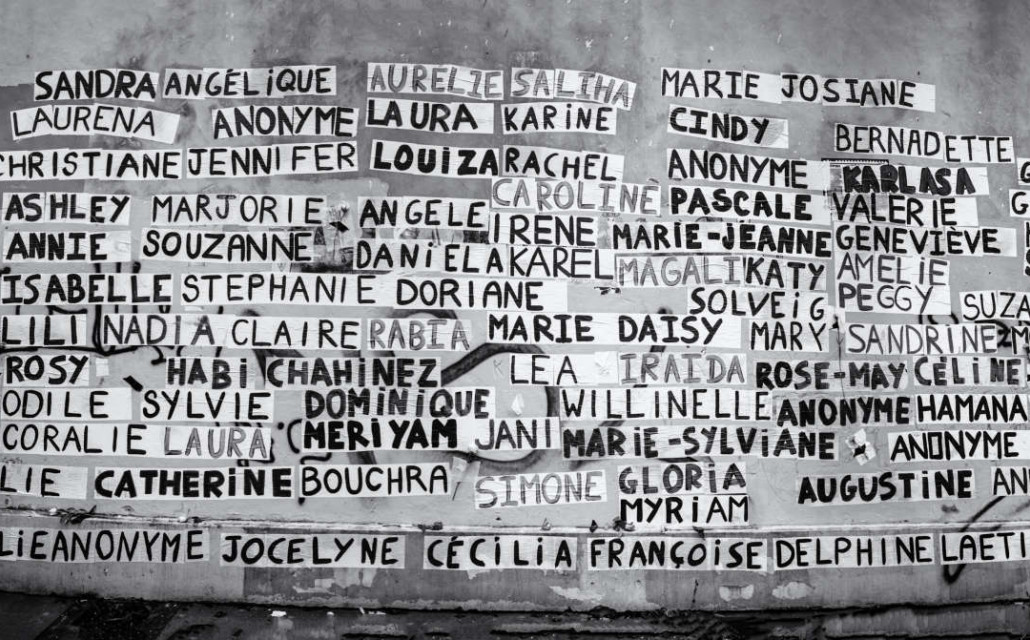 SANDRA ANGÉLiQUE AURELIE SALIHA MARIE JOSIANE
LAURENA ANONYME LAURA KARiNE CINDY BERNADETTE
CHRISTIANE JENNIFER LOUiZA RACHEL ANONYME KARLASA
ASHLEY MARJORIE ANGELE CAROLINE PASCALE VALERIE
ANNIE SOUZANNE DANiELA IRENE KAREL MARIE-JEANNE GENEVIÈVE
ISABELLE STEPHANIE DORIANE MAGALI KATY AMELiE
SOLVEiG PEGGY SUZA
LILI NADIA CLAIRE RABIA MARIE DAISY MARY SANDRiNE
ROSY HABi CHAHiNEZ LEA IRAIDA ROSE-MAY CÉLiNE
ODILE SYLVIE DOMiNiQUE WILLINELLE ANONYME HAMANA
CORALIE LAURA MERiYAM JANI MARiE-SYLViANE ANONYME
LIE CATHERiNE BOUCHRA SIMONE GLORiA AUGUSTiNE AN
MYRiAM
LiE ANONYME JOCELYNE CÉCiLiA FRANÇOiSE DELPHINE LAETI